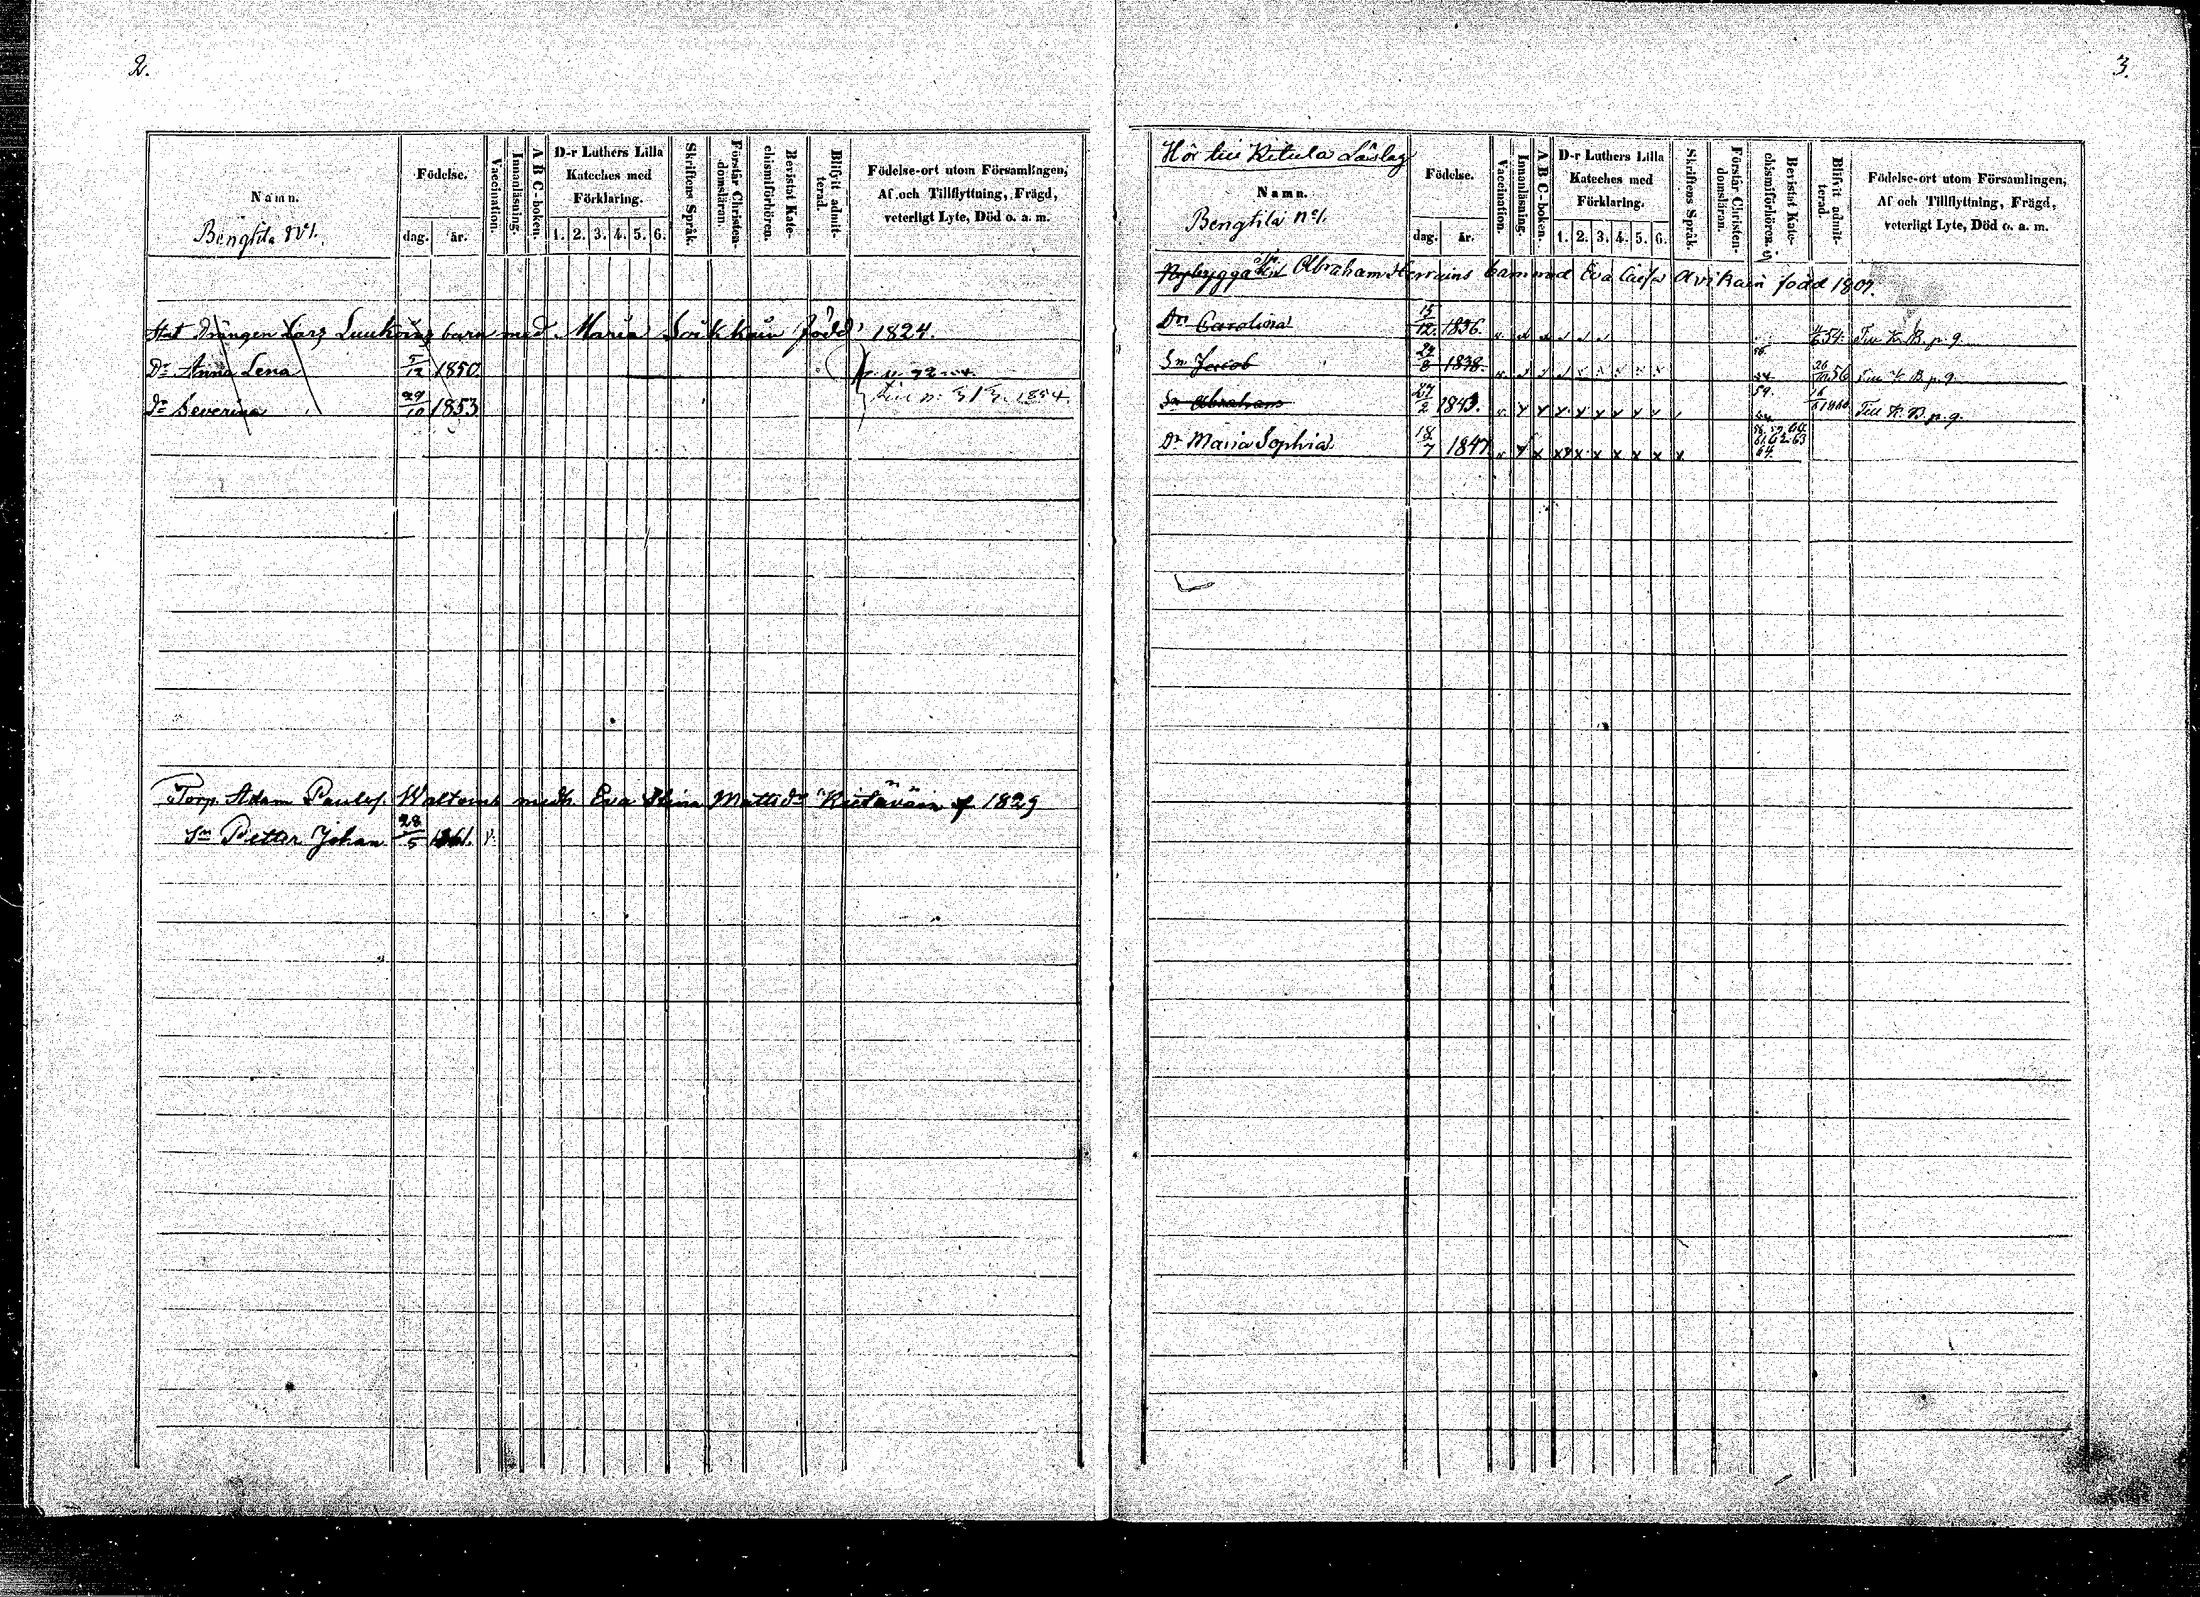 2.
Namn.
Bengtila N:o 1.
Födelse.
dag. år.
Vaccination.
Innanläsning.
A B C-boken.
D-r Luthers Lilla
Kateches med
Förklaring.
1. 2. 3. 4. 5. 6.
Skriftens Språk.
Förstår Christen-
domsläran.
Bevistat Kate-
chismiförhören.
Blifvit admit-
terad.
Födelse-ort utom Församlingen,
Af och Tillflyttning, Frägd,
veterligt Lyte, Död o. a. m.
Stat Drängen Lars barn med Maria Född 1824.
Dr Anna Lena 5/12 1850.
Dr Severina 29/10 1853 1854.
Torp. Adam Paulsf. med Eva Stina Mattsdr f 1829
Sn Petter Johan 28/5 1861. v.
3.
Hör till Kitula Läslag
Namn.
Bengtila No 1.
Födelse.
dag. år.
Vaccination.
Innanläsning.
A B C-boken.
D-r Luthers Lilla
Kateches med
Förklaring.
1. 2. 3. 4. 5. 6.
Skriftens Språk.
Förstår Christen-
domsläran.
Bevistat Kate-
chismiförhören.
Blifvit admit-
terad.
Födelse-ort utom Församlingen,
Af och Tillflyttning, Frägd,
veterligt Lyte, Död o. a. m.
Nybygga Abraham Herrains barn med Eva Caisa Avikain född 1807.
Dr Carolina 15/12 1836. v. 54. Till K. B. p. 9.
Sn Jacob 1838. v. 56 Till K. B. p. 9.
Sn Abraham 27/2 1843. v. x x x x x x x x 59. 1860 Till K. B. p. 9.
Dr Maria Sophia 18/7 1847. v. x x x x x x x x x 61. 62. 63 64.